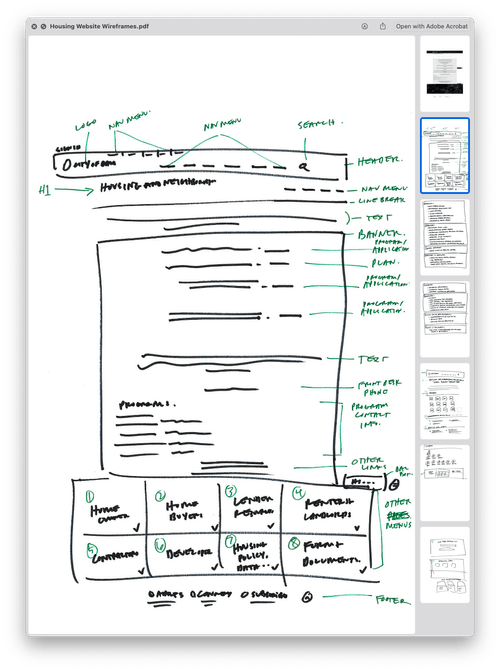 Housing Website Wireframes.pdf
Open with Adobe Acrobat
LOGO
NAV MENU.
NAV MENU
SEARCH.
HEADER.
H1
HOUSING AND NEIGHBORHOOD
NAV MENU
LINE BREAK
TEXT
BANNER.
PROGRAM/
APPLICATION
PLAN.
PROGRAM/
APPLICATION
PROGRAM/
APPLICATION.
TEXT
PHONE
PROGRAMS.
PROGRAM
CONTACT
INFO.
OTHER
LINKS
1
HOME
OWNER
2
HOME
BUYERS
3
LENDER
4
RENTERS
LANDLORDS
OTHER
MENUS
5
6
DEVELOPER
7
HOUSING
POLICY,
DATA..
8
DOCUMENTS.
FOOTER